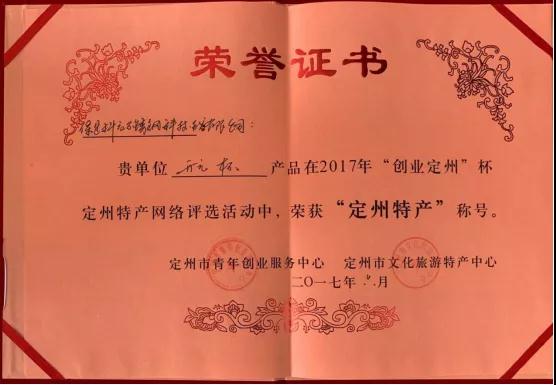 荣誉证书
贵单位 开元杯 产品在2017年“创业定州”杯
定州特产网络评选活动中，荣获“定州特产”称号。
定州市青年创业服务中心 定州市文化旅游特产中心
二〇一七年 月